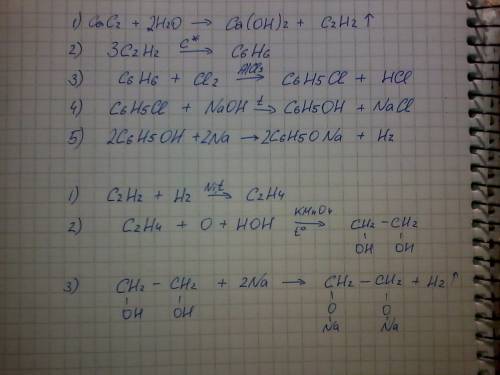 1) CaC2 + 2H2O → Ca(OH)2 + C2H2 ↑
2) 3C2H2 C* → C6H6
3) C6H6 + Cl2 AlCl3 → C6H5Cl + HCl
4) C6H5Cl + NaOH t → C6H5OH + NaCl
5) 2C6H5OH + 2Na → 2C6H5ONa + H2
1) C2H2 + H2 Ni,t → C2H4
2) C2H4 + O + HOH KMnO4 t° → CH2 – CH2
OH OH
3) CH2 – CH2 + 2Na → CH2 – CH2 + H2 ↑
OH OH O O
Na Na